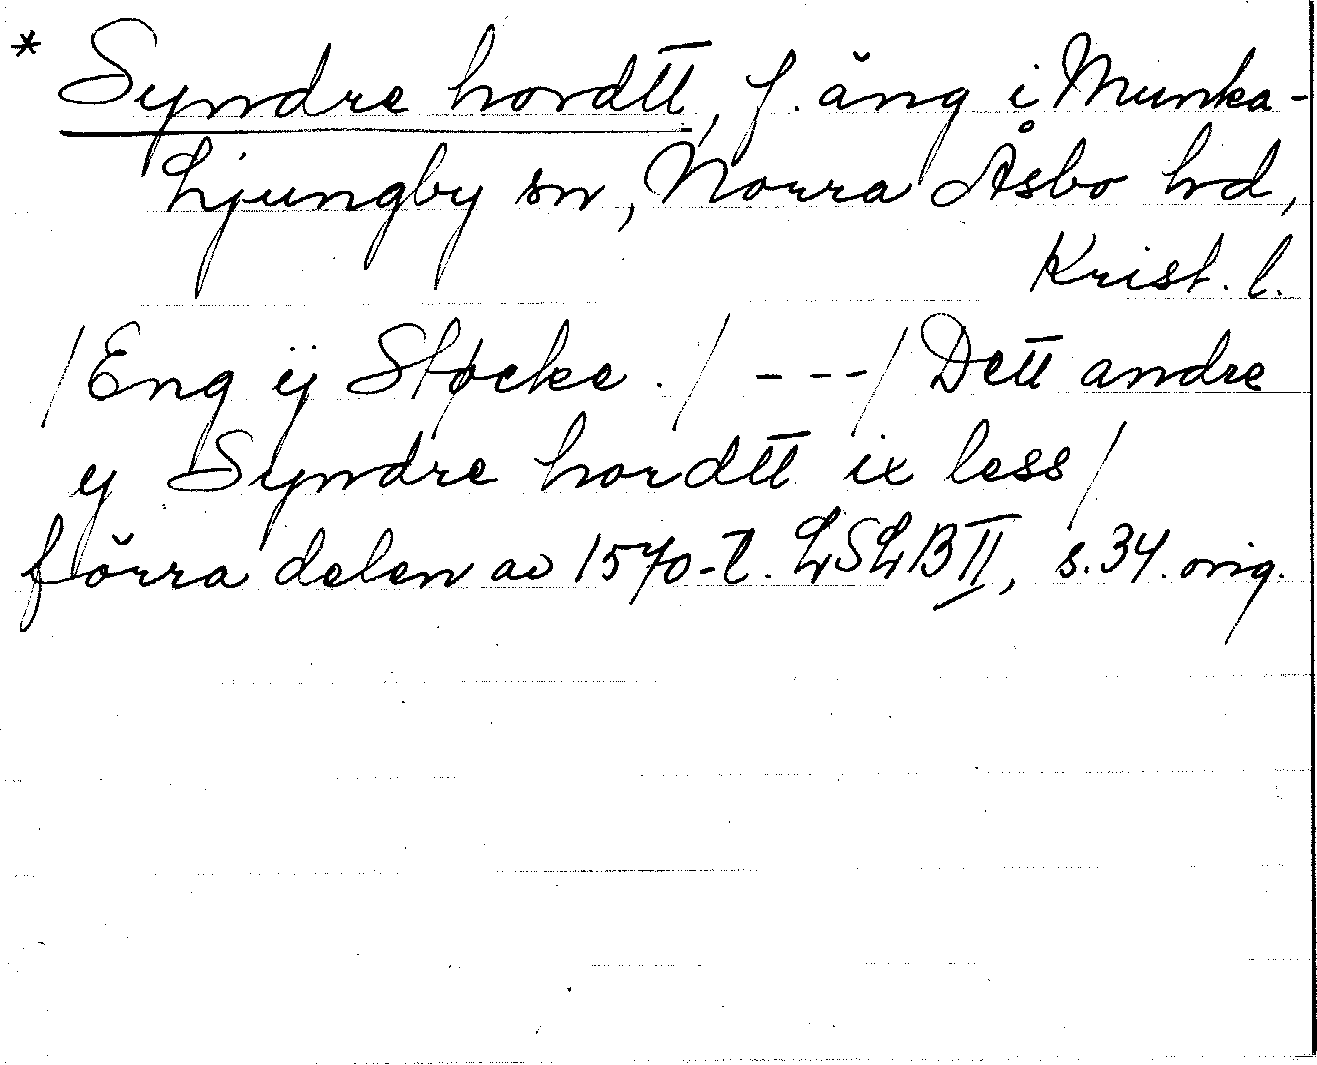 * Syndre hordtt, f. äng i Munka-
Ljungby sn, Norra Åsbo hd,
Krist. l.
/Eng ÿ Støcke ./ ---/ Dett andre
y Syndre hordtt ix less/
förra delen av 1570-t. LSLB II, s. 34. orig.